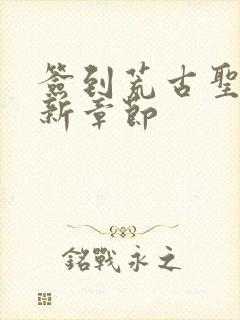 簽到荒古聖
新章節
銘戰永之